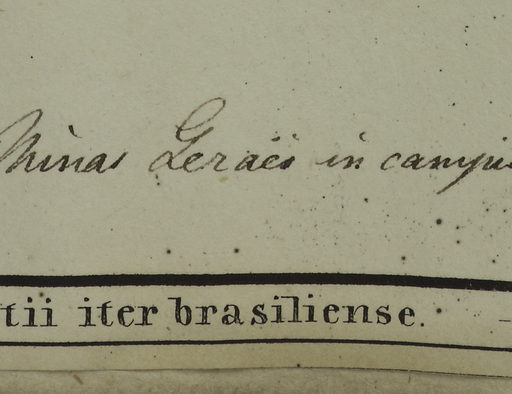 Minas Geraës in campis
tii iter brasiliense.